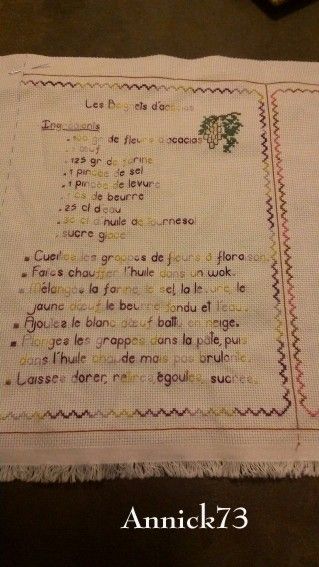 Les Beignets d'acacias
Ingrédients
. 100 gr de fleurs d'acacias
. 1 œuf
. 125 gr de farine
. 1 pincée de sel
. 1 pincée de levure
de beurre
. 25 cl d'eau
. 50 cl d'huile de tournesol
. sucre glace
Cueillez les grappes de fleurs à floraison.
Faites chauffer l'huile dans un wok.
Mélangez la farine, le sel, la levure, le
jaune d'œuf, le beurre fondu et l'eau.
Ajoutez le blanc d'œuf battu en neige.
Plongez les grappes dans la pâte, puis
dans l'huile chaude mais pas brulante.
Laissez dorer, retirez, égoutez, sucrez.
Annick73